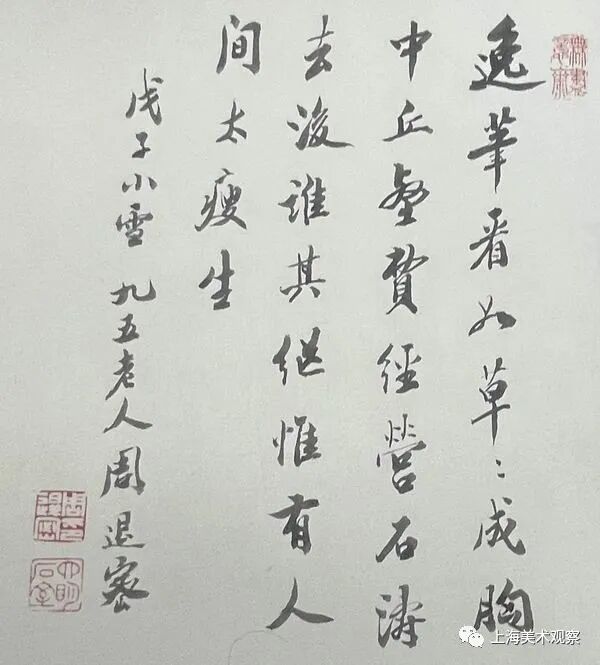 逸筆看如草〻成胸
中丘壑費經營石濤
去後誰其继惟有人
间太瘦生
戊子小雪 九五老人周退密
上海美术观察